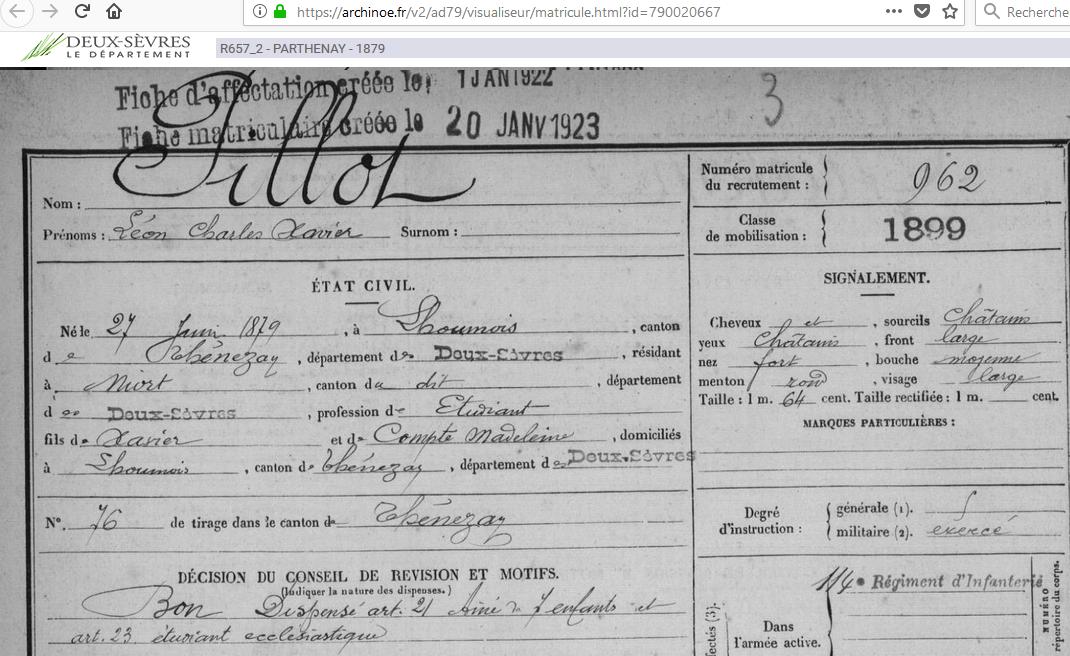 https://archinoe.fr/v2/ad79/visualiseur/matricule.html?id=790020667
Recherche
DEUX-SÈVRES
LE DÉPARTEMENT
R657_2 - PARTHENAY - 1879
Fiche d'affectation créée le: 1 JAN 1922
Fiche matriculaire créée le 20 JANV 1923
3
Nom : Pillot
Prénoms : Léon Charles Xavier Surnom :
Numéro matricule
du recrutement : 962
Classe
de mobilisation : 1899
ÉTAT CIVIL.
Né le 27 Juin 1879, à Lhoumois, canton
de Thénezay, département des Deux-Sèvres, résidant
à Niort, canton du dit, département
des Deux-Sèvres, profession d' Etudiant
fils de Xavier et de Compte Madeleine, domiciliés
à Lhoumois, canton de Thénezay, département des Deux-Sèvres
N°. 76 de tirage dans le canton de Thénezay
DÉCISION DU CONSEIL DE REVISION ET MOTIFS.
(Indiquer la nature des dispenses.)
Bon Dispensé art. 21 Ainé de 7 enfants et
art. 23 étudiant ecclésiastique
SIGNALEMENT.
Cheveux et, sourcils Châtains
yeux Châtains, front large
nez fort, bouche moyenne
menton rond, visage large
Taille : 1 m. 64 cent. Taille rectifiée : 1 m. cent.
MARQUES PARTICULIÈRES :
Degré
d'instruction :
générale (1).
militaire (2). exercé
114e Régiment d'Infanterie
Dans
l'armée active.
NUMÉRO
répertoire du corps.